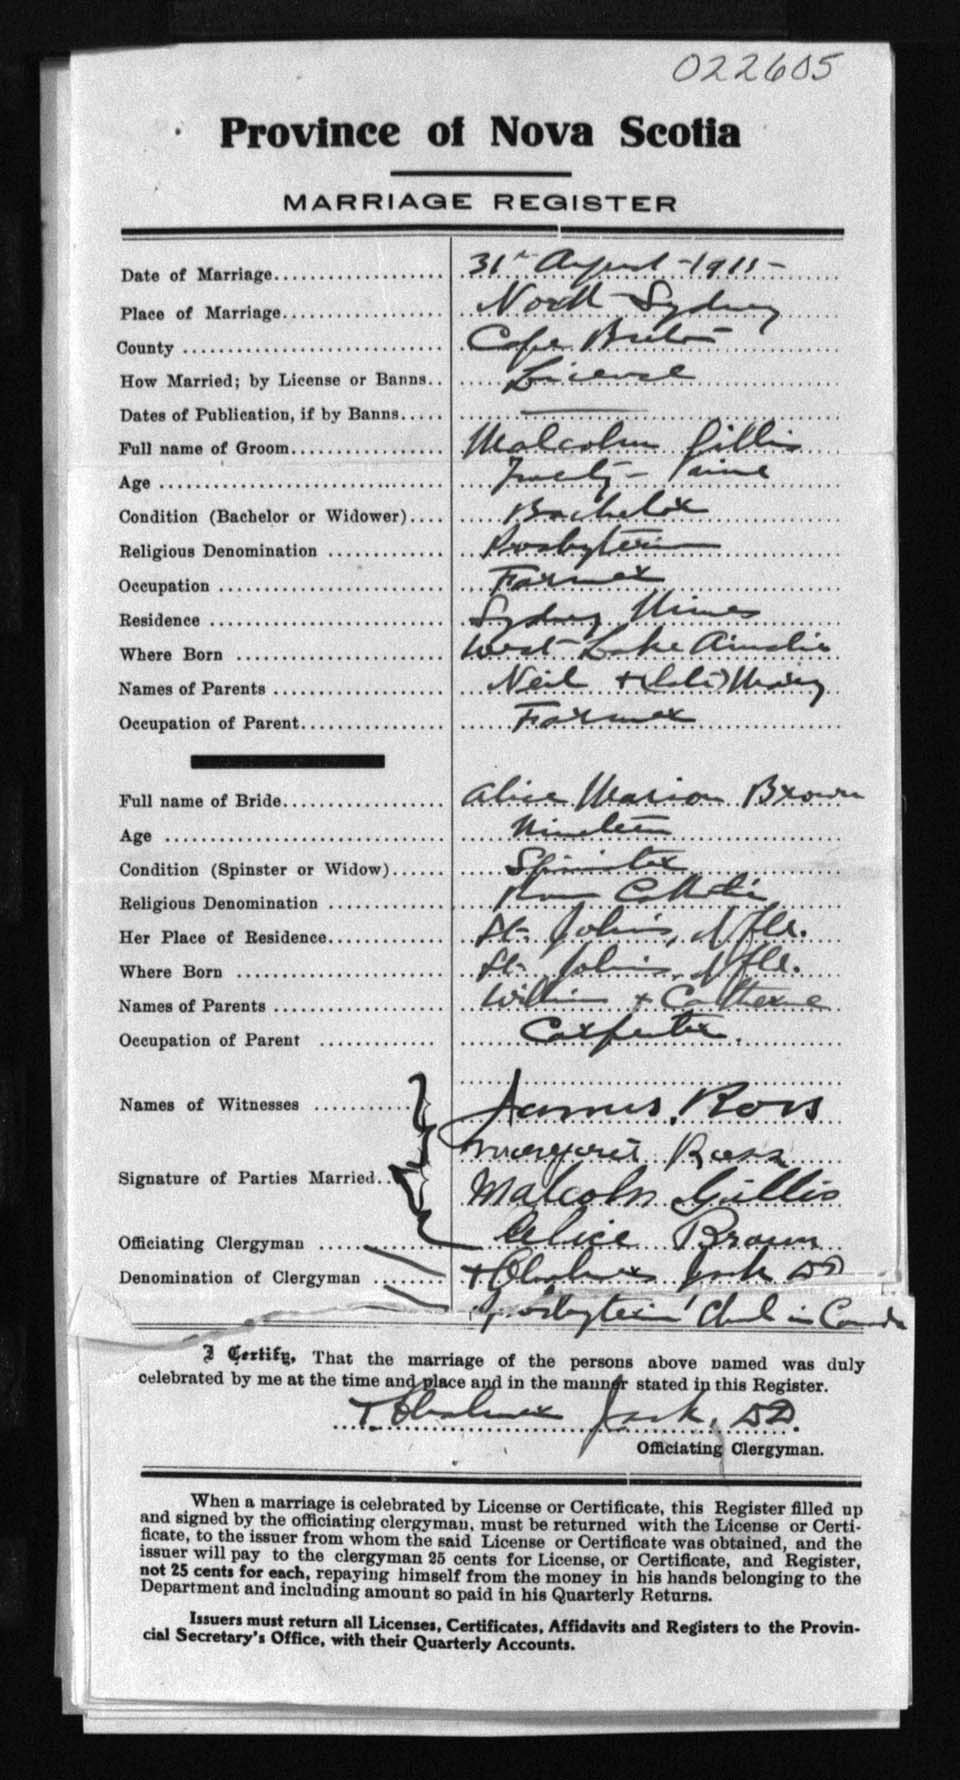 022605
Province of Nova Scotia
MARRIAGE REGISTER
Date of Marriage 31st August - 1911 -
Place of Marriage North Sydney
County Cape Breton
How Married; by License or Banns License
Dates of Publication, if by Banns
Full name of Groom Malcolm Gillis
Age Twenty-nine
Condition (Bachelor or Widower) Bachelor
Religious Denomination Presbyterian
Occupation Farmer
Residence Sydney Mines
Where Born West Lake Ainslie
Names of Parents Neil + Mary
Occupation of Parent Farmer
Full name of Bride Alice Marion Brown
Age Nineteen
Condition (Spinster or Widow) Spinster
Religious Denomination Rom Catholic
Her Place of Residence St. Johns, Nfld.
Where Born St. Johns, Nfld.
Names of Parents William + Catherine
Occupation of Parent Carpenter.
Names of Witnesses James Ross
Margaret Ross
Signature of Parties Married Malcolm Gillis
Alice Brown
Officiating Clergyman T Chalmers Jack DD
Denomination of Clergyman Presbyterian Church in Canada
I Certify, That the marriage of the persons above named was duly
celebrated by me at the time and place and in the manner stated in this Register.
T. Chalmers Jack, DD.
Officiating Clergyman.
When a marriage is celebrated by License or Certificate, this Register filled up
and signed by the officiating clergyman, must be returned with the License or Certi-
ficate, to the issuer from whom the said License or Certificate was obtained, and the
issuer will pay to the clergyman 25 cents for License, or Certificate, and Register,
not 25 cents for each, repaying himself from the money in his hands belonging to the
Department and including amount so paid in his Quarterly Returns.
Issuers must return all Licenses, Certificates, Affidavits and Registers to the Provin-
cial Secretary's Office, with their Quarterly Accounts.